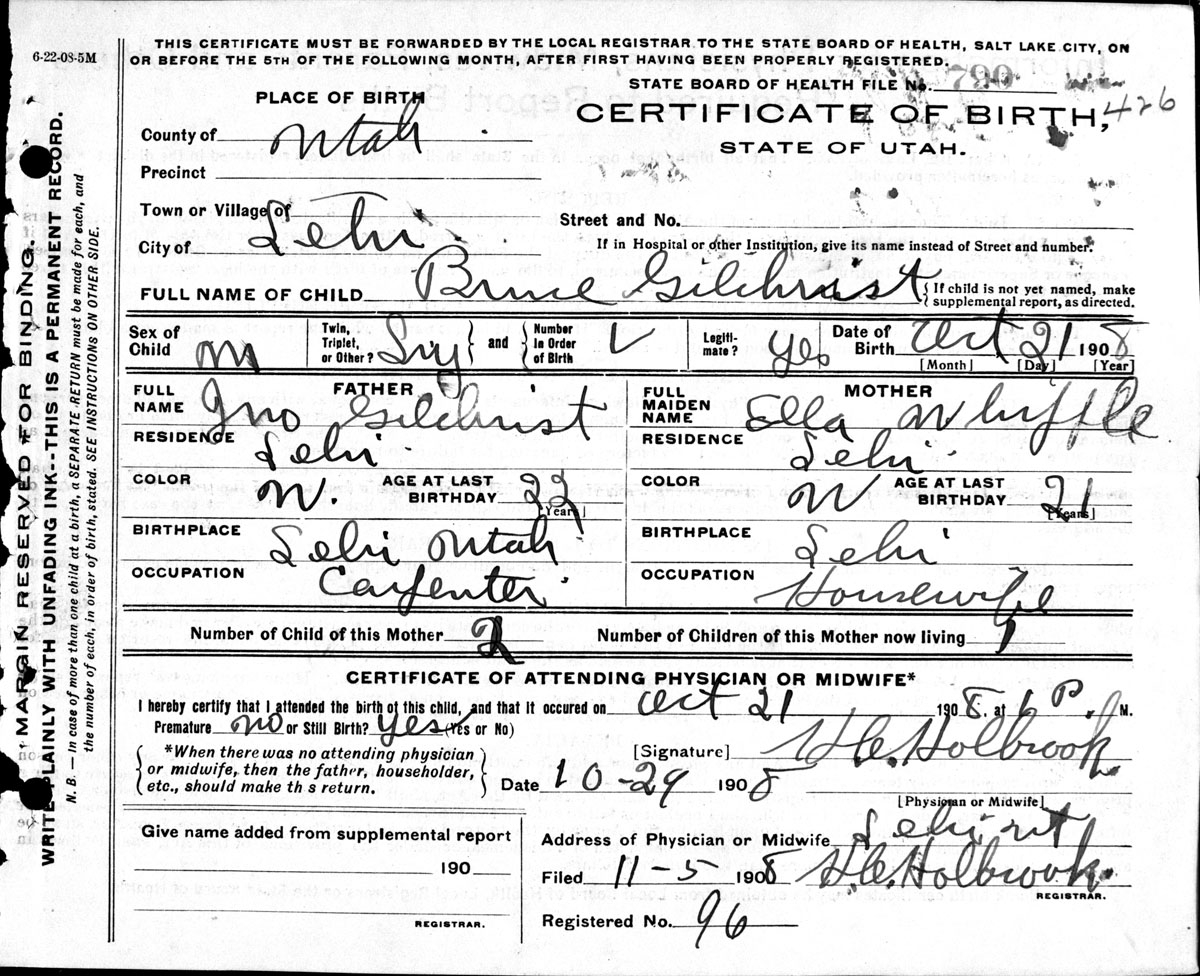 6-22-08-5M
THIS CERTIFICATE MUST BE FORWARDED BY THE LOCAL REGISTRAR TO THE STATE BOARD OF HEALTH, SALT LAKE CITY, ON
OR BEFORE THE 5TH OF THE FOLLOWING MONTH, AFTER FIRST HAVING BEEN PROPERLY REGISTERED.
STATE BOARD OF HEALTH FILE No. 790
PLACE OF BIRTH
CERTIFICATE OF BIRTH, 426
STATE OF UTAH.
County of Utah
Precinct
Town or Village of
Street and No.
City of Lehi
If in Hospital or other Institution, give its name instead of Street and number.
FULL NAME OF CHILD Bruce Gilchrist { If child is not yet named, make supplemental report, as directed.
Sex of Child m
Twin, Triplet, or Other? } and { Number in Order of Birth
Legitimate? yes
Date of Birth Oct 21 1908
[Month] [Day] [Year]
FATHER
FULL NAME Jno Gilchrist
RESIDENCE Lehi
COLOR W. AGE AT LAST BIRTHDAY 22 [Years]
BIRTHPLACE Lehi Utah
OCCUPATION Carpenter
MOTHER
FULL MAIDEN NAME Ella Whipple
RESIDENCE Lehi
COLOR W AGE AT LAST BIRTHDAY 21 [Years]
BIRTHPLACE Lehi
OCCUPATION Housewife
Number of Child of this Mother 2 Number of Children of this Mother now living 1
CERTIFICATE OF ATTENDING PHYSICIAN OR MIDWIFE*
I hereby certify that I attended the birth of this child, and that it occured on Oct 21 1908. at 6 P. M.
Premature no or Still Birth? yes (Yes or No)
*When there was no attending physician
or midwife, then the father, householder,
etc., should make th s return.
[Signature] H.C. Holbrook.
Date 10-29 1908
[Physician or Midwife]
Give name added from supplemental report
190
REGISTRAR.
Address of Physician or Midwife Lehi Ut
Filed 11-5 1908 H.C. Holbrook.
REGISTRAR.
Registered No. 96
MARGIN RESERVED FOR BINDING.
WRITE PLAINLY WITH UNFADING INK--THIS IS A PERMANENT RECORD.
N. B.—In case of more than one child at a birth, a SEPARATE RETURN must be made for each, and
the number of each, in order of birth, stated. SEE INSTRUCTIONS ON OTHER SIDE.